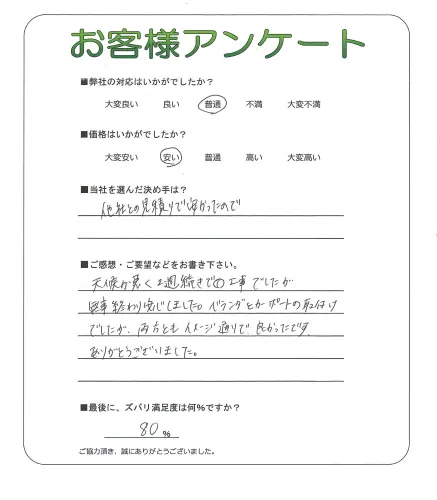 お客様アンケート
■弊社の対応はいかがでしたか？
大変良い 良い 普通 不満 大変不満
■価格はいかがでしたか？
大変安い 安い 普通 高い 大変高い
■当社を選んだ決め手は？
他社との見積りで安かったので
■ご感想・ご要望などをお書き下さい。
天候が悪く2週続きでの工事でしたが
無事終わり安心しました。ベランダとカーポートの取付け
でしたが、両方ともイメージ通りで良かったです。
ありがとうございました。
■最後に、ズバリ満足度は何%ですか？
80 %
ご協力頂き、誠にありがとうございました。